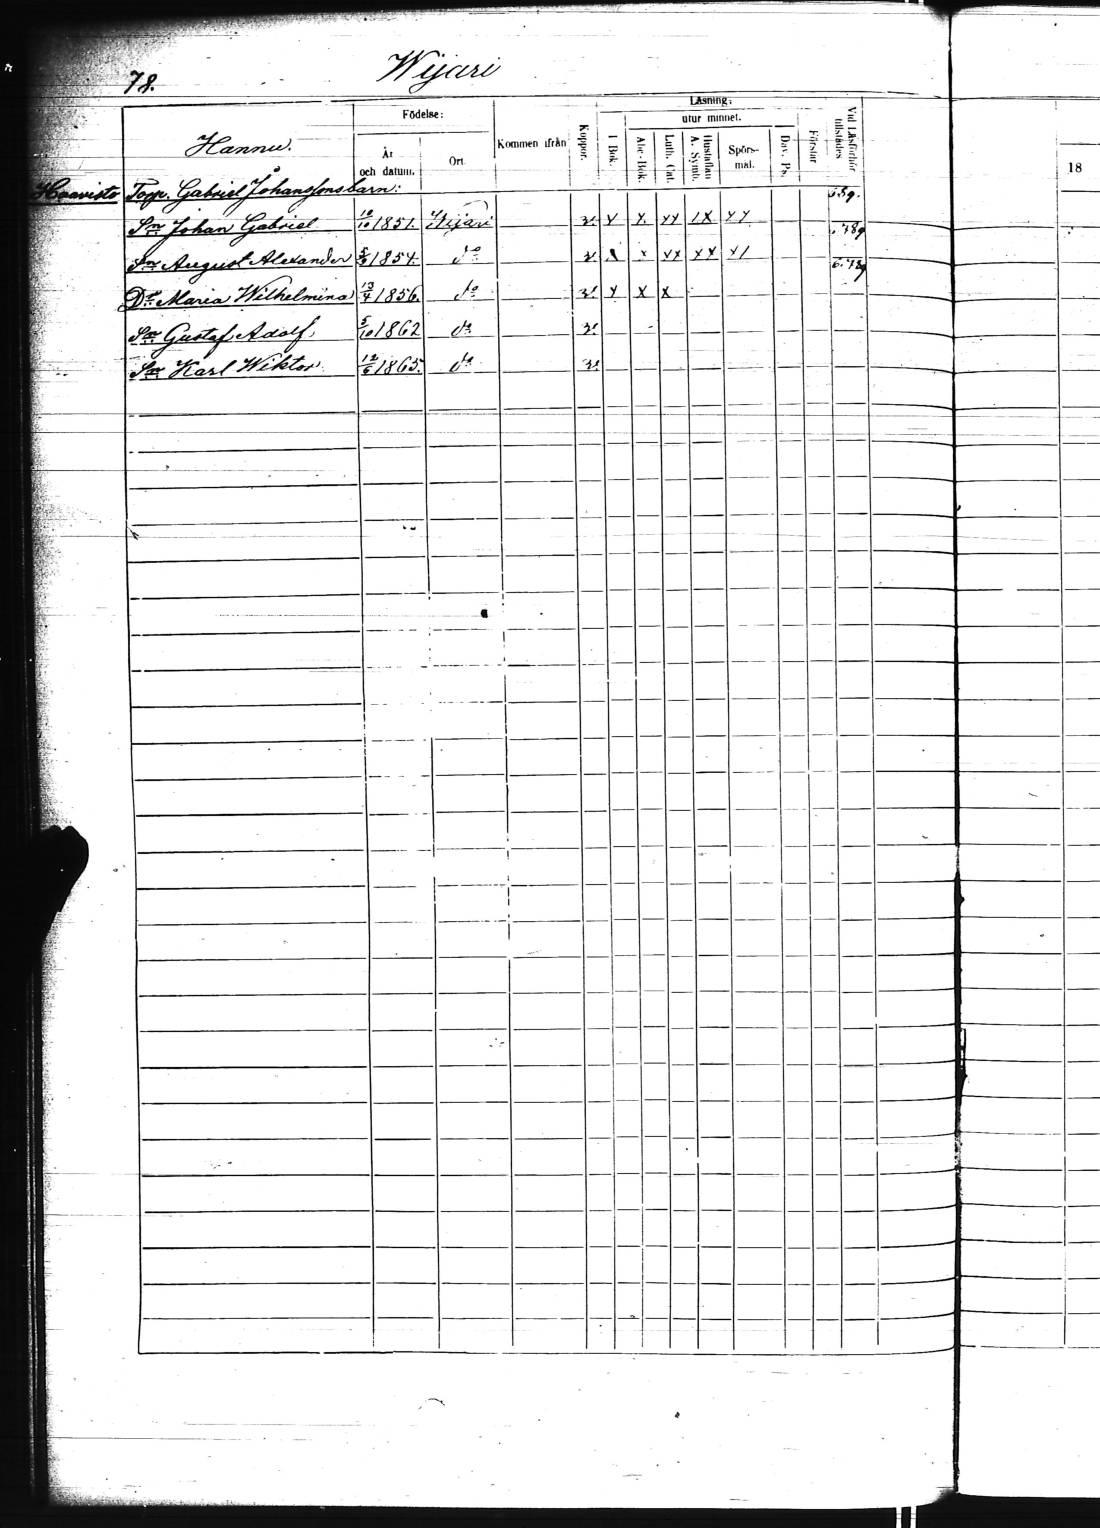 78.
Wijari
Hannu.
Födelse:
År och datum.
Ort.
Kommen ifrån
Koppor.
Läsning:
utur minnet.
I Bok.
Abc-Bok.
Luth. Cat.
Hustaflan A. Symb.
Spörs-mål.
Dav. Ps.
Förstår
Vid Läsförhör tillstädes
18
Torp. Gabriel Johanssons barn: 6.8.9.
Sn Johan Gabriel 10/10 1851. Wijari v. x x. xx 1x xx 6.7.8.9
Sn August Alexander 5/3 1854. do v. x xx xx x1 6.7.8.9
Dr Maria Wilhelmina 13/4 1856. do v. x x x
Sn Gustaf Adolf 5/10 1862 do v.
Sn Karl Wiktor 12/6 1865. do v.